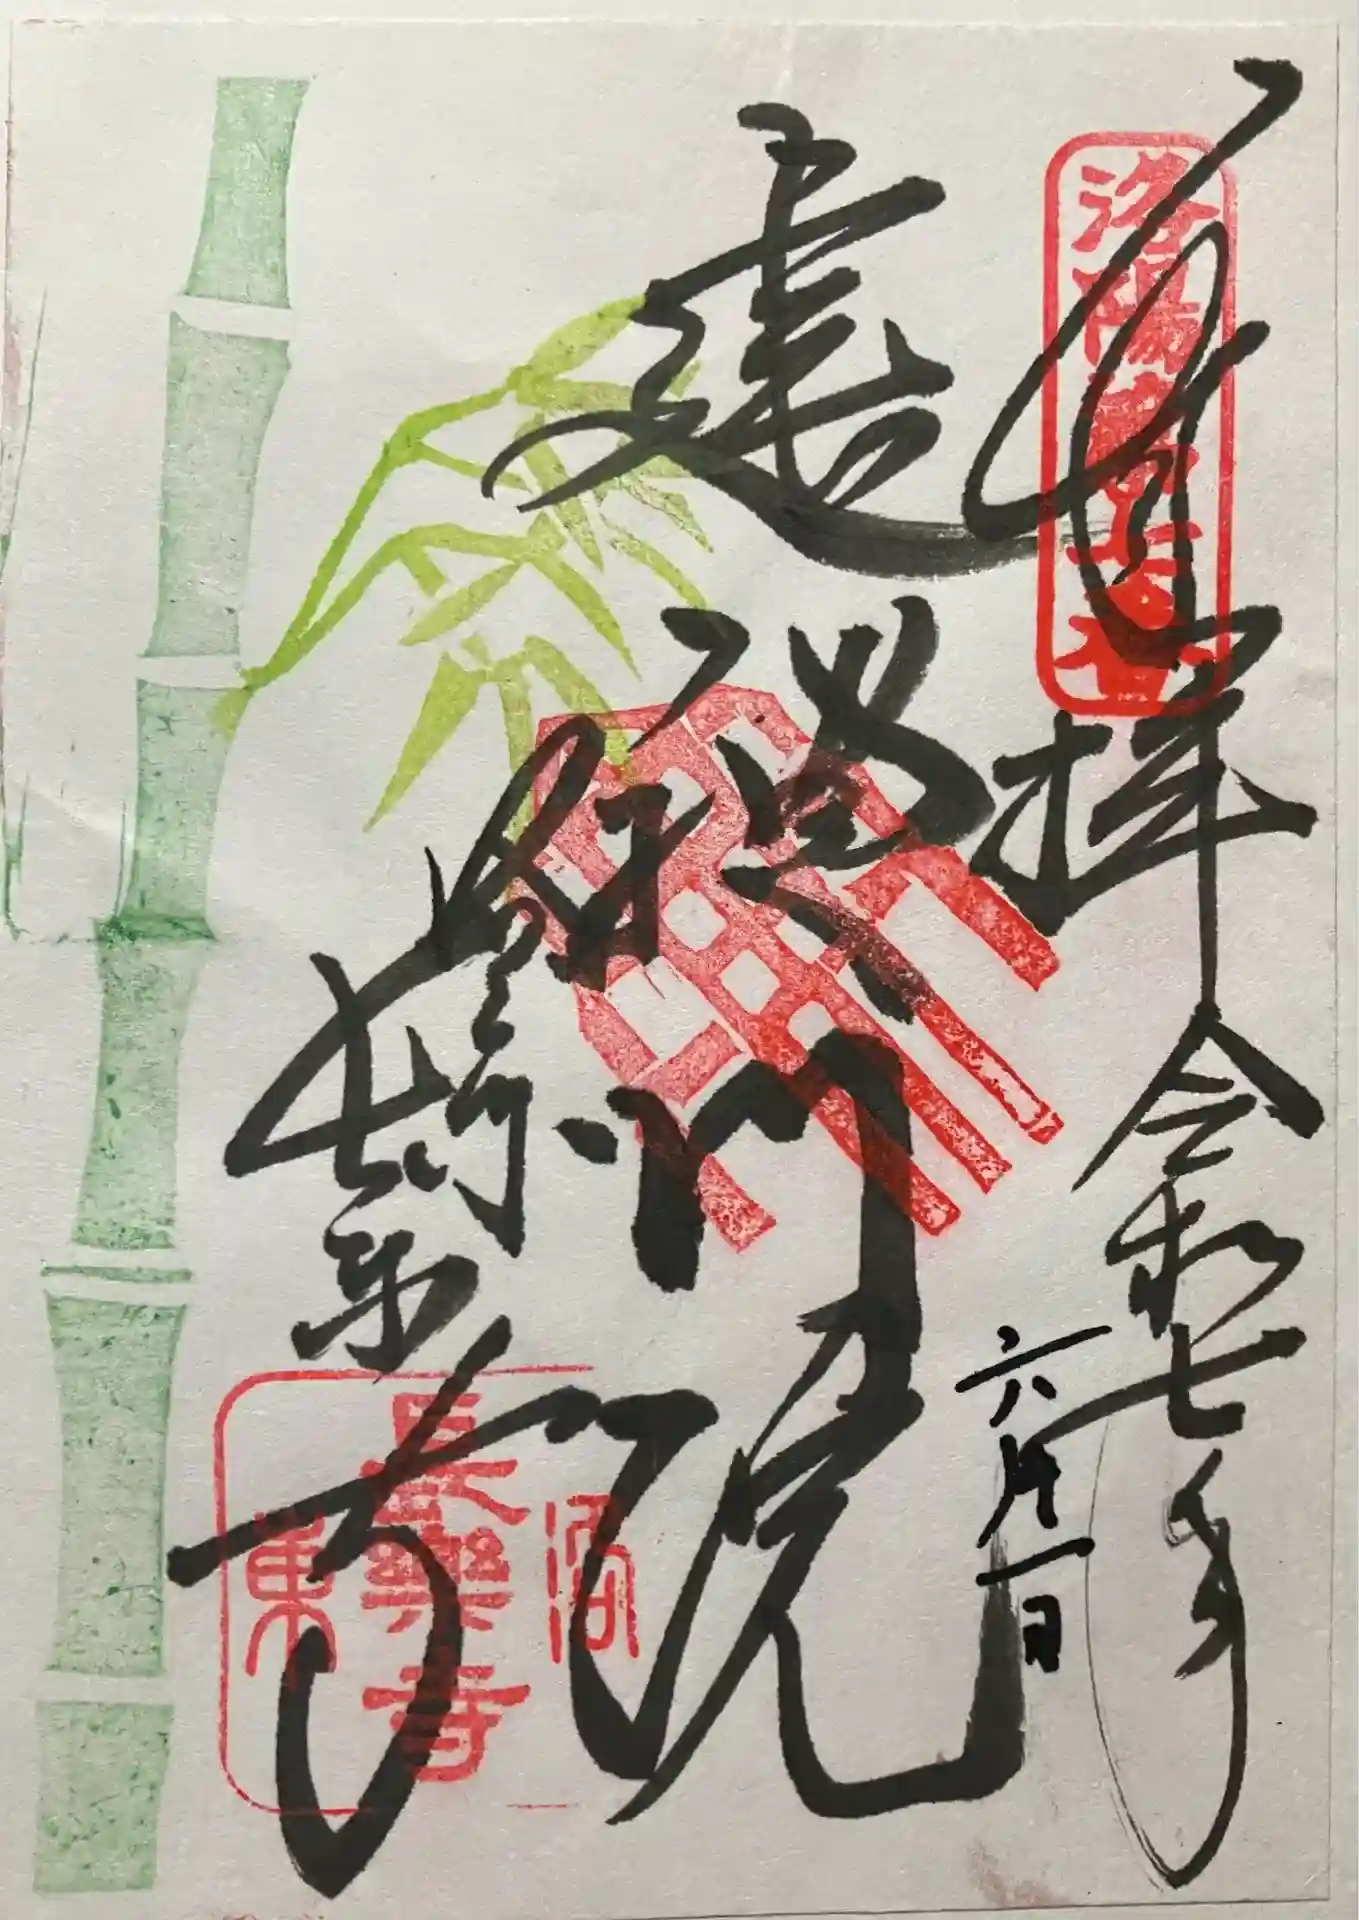 奉拝 令和七年
六月一日
建礼門院
御塔所
長楽寺
洛陽第七番
洛
長楽寺
東